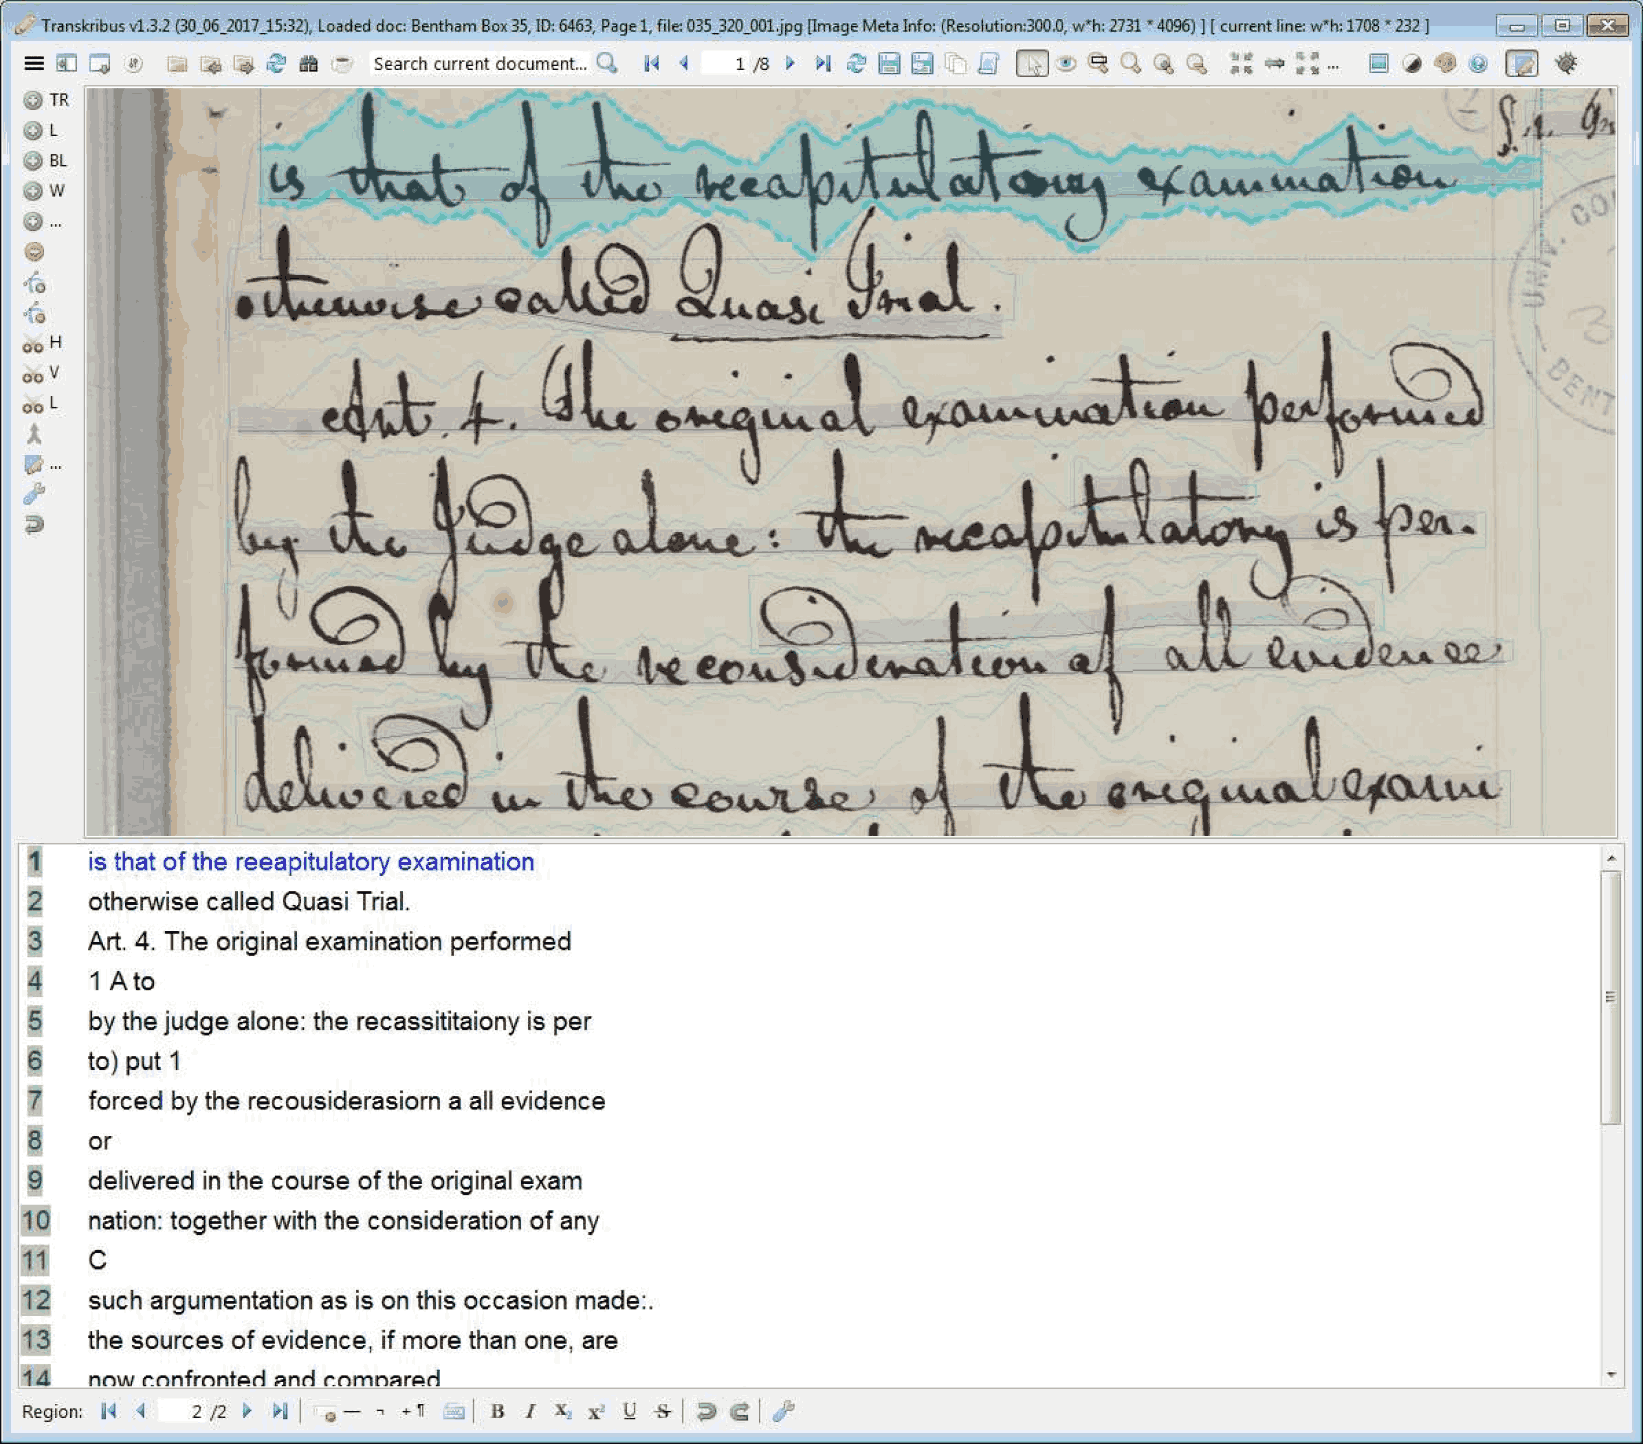 Transkribus v1.3.2 (30_06_2017_15:32), Loaded doc: Bentham Box 35, ID: 6463, Page 1, file: 035_320_001.jpg [Image Meta Info: (Resolution:300.0, w*h: 2731 * 4096) ] [ current line: w*h: 1708 * 232 ]
Search current document... 1 /8 ...
TR
L
BL
W
...
H
V
L
...
is that of the recapitulatory examination
otherwise called Quasi Trial.
Art. 4. The original examination performed
by the Judge alone: the recapitulatory is per-
formed by the reconsideration of all evidence
delivered in the course of the original exami
UNIV. COL
BENT
1 is that of the reeapitulatory examination
2 otherwise called Quasi Trial.
3 Art. 4. The original examination performed
4 1 A to
5 by the judge alone: the recassititaiony is per
6 to) put 1
7 forced by the recousiderasiorn a all evidence
8 or
9 delivered in the course of the original exam
10 nation: together with the consideration of any
11 C
12 such argumentation as is on this occasion made:.
13 the sources of evidence, if more than one, are
14 now confronted and compared
Region: 2 /2 — ¬ +¶ B I X₂ X² U S